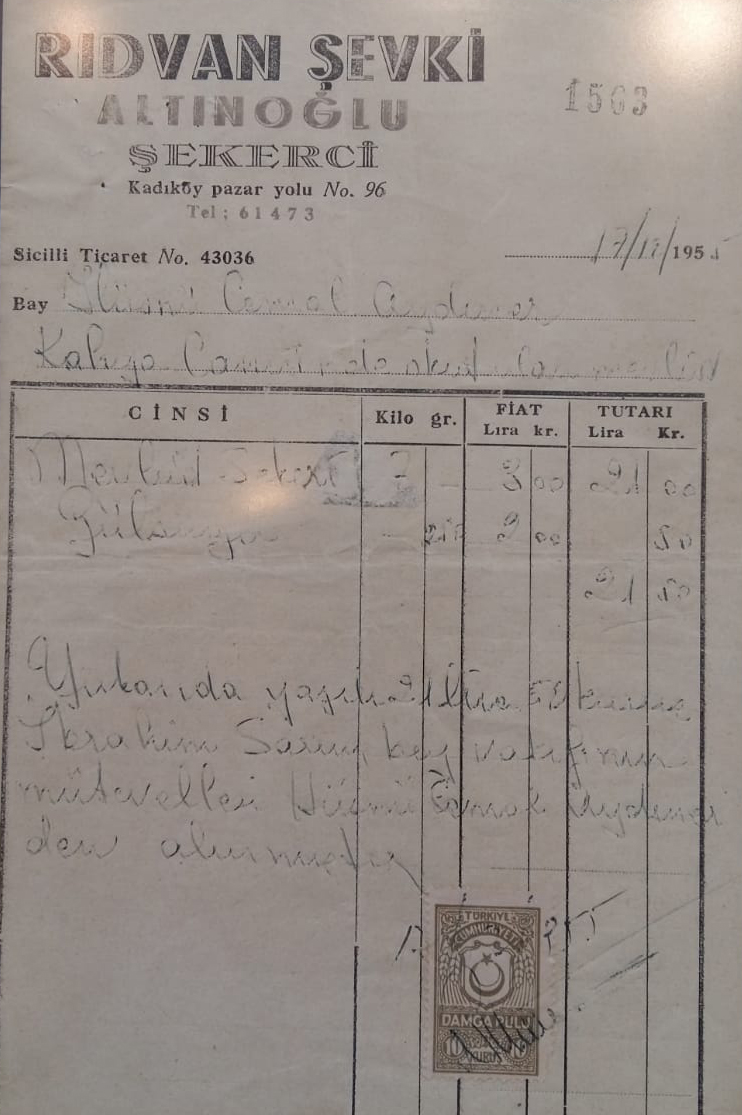 RIDVAN ŞEVKİ
ALTINOĞLU
1563
ŞEKERCİ
Kadıköy pazar yolu No. 96
Tel : 61473
Sicilli Ticaret No. 43036
17/11/1955
Bay Hüsnü Cemal Aydıner
Camiinde mevlüd
CİNSİ Kilo gr. FİAT TUTARI
Lira kr. Lira Kr.
Mevlüd Şekeri 7 — 3 00 21 00
Gülsuyu — 250 2 00 50
21 50
Yukarıda yazılı 21 lira 50 kuruş
İbrahim Sarım bey vakfının
mütevellisi Hüsnü Cemal Aydıner
den alınmıştır
TÜRKİYE
CUMHURİYETİ
DAMGA PULU
10 10
KURUŞ